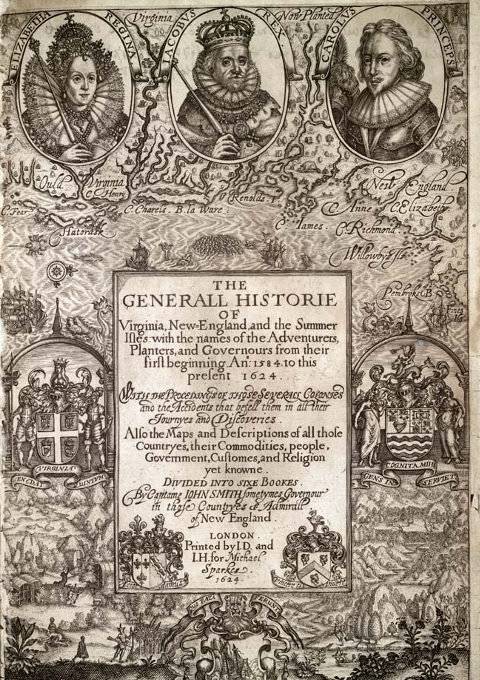 ELIZABETHA REGINA
IACOBVS REX
CAROLVS PRINCEPS
Virginia
Now Planted
Ould Virginia
C. Henry
C. Fear
Hatorask
C. Charels
B. la Ware
Renolds
C. Iames
New England
C. Anne
C. Elizabeth
C. Richmond
Willowbys Iles
Pembroks B
THE
GENERALL HISTORIE
OF
Virginia, New-England, and the Summer
Isles: with the names of the Adventurers,
Planters, and Governours from their
first beginning An: 1584. to this
present 1624.
WITH THE PROCEDINGS OF THOSE SEVERALL COLONIES
and the Accidents that befell them in all their
Journyes and Discoveries.
Also the Maps and Descriptions of all those
Countryes, their Commodities, people,
Government, Customes, and Religion
yet knowne.
DIVIDED INTO SIXE BOOKES.
By Captaine IOHN SMITH sometymes Governour
in those Countryes & Admirall
of New England.
LONDON
Printed by I.D. and
I.H. for Michael
Sparkes.
1624.
VIRGINIA
EN DAT QVINTVM
COGNITA MIHI
GENS IN SERVIET